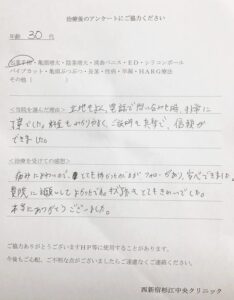 治療後のアンケートにご協力ください
年齢 30 代
包茎手術・亀頭増大・陰茎増大・流血ペニス・ED・シリコンボール
パイプカット・亀頭ぶつぶつ・長茎・性病・早漏・HARG療法
その他(
<当院を選んだ理由> 立地もよく、電話で問い合わせ時、非常に
丁寧でした。料金もわかりやすく、ご説明も真摯で、信頼が
できました。
<治療を受けての感想>
痛みによわいので、とても怖かったのですがフォローがあり安心できました。
真剣に悩んでよかったです。とてもきれいでした。
本当にありがとうございました。
ご協力ありがとうございますHP等に使用することがあります。
今後もご心配、ご不明な点がございましたらご遠慮なくご連絡ください。
西新宿杉江中央クリニック